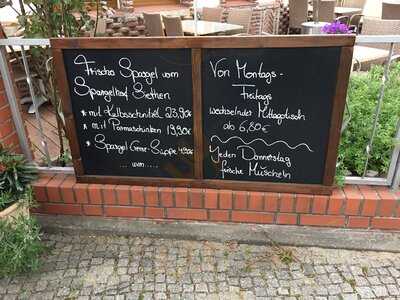 Frischer Spargel vom
Spargelhof Siethen
* mit Kalbsschnitzel 23,90€
* mit Parmaschinken 19,90€
* Spargel Creme-Suppe 4,90€
... uvm. ...
Von Montags -
Freitags
wechselnder Mittagstisch
ab 6,80€
Jeden Donnerstag
frische Muscheln